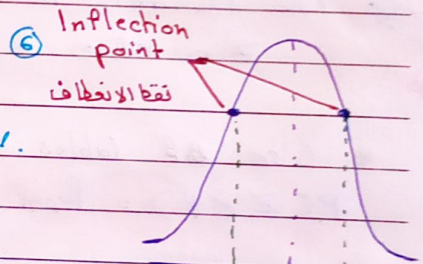 6 Inflection
point
نقط الانعطاف
1.